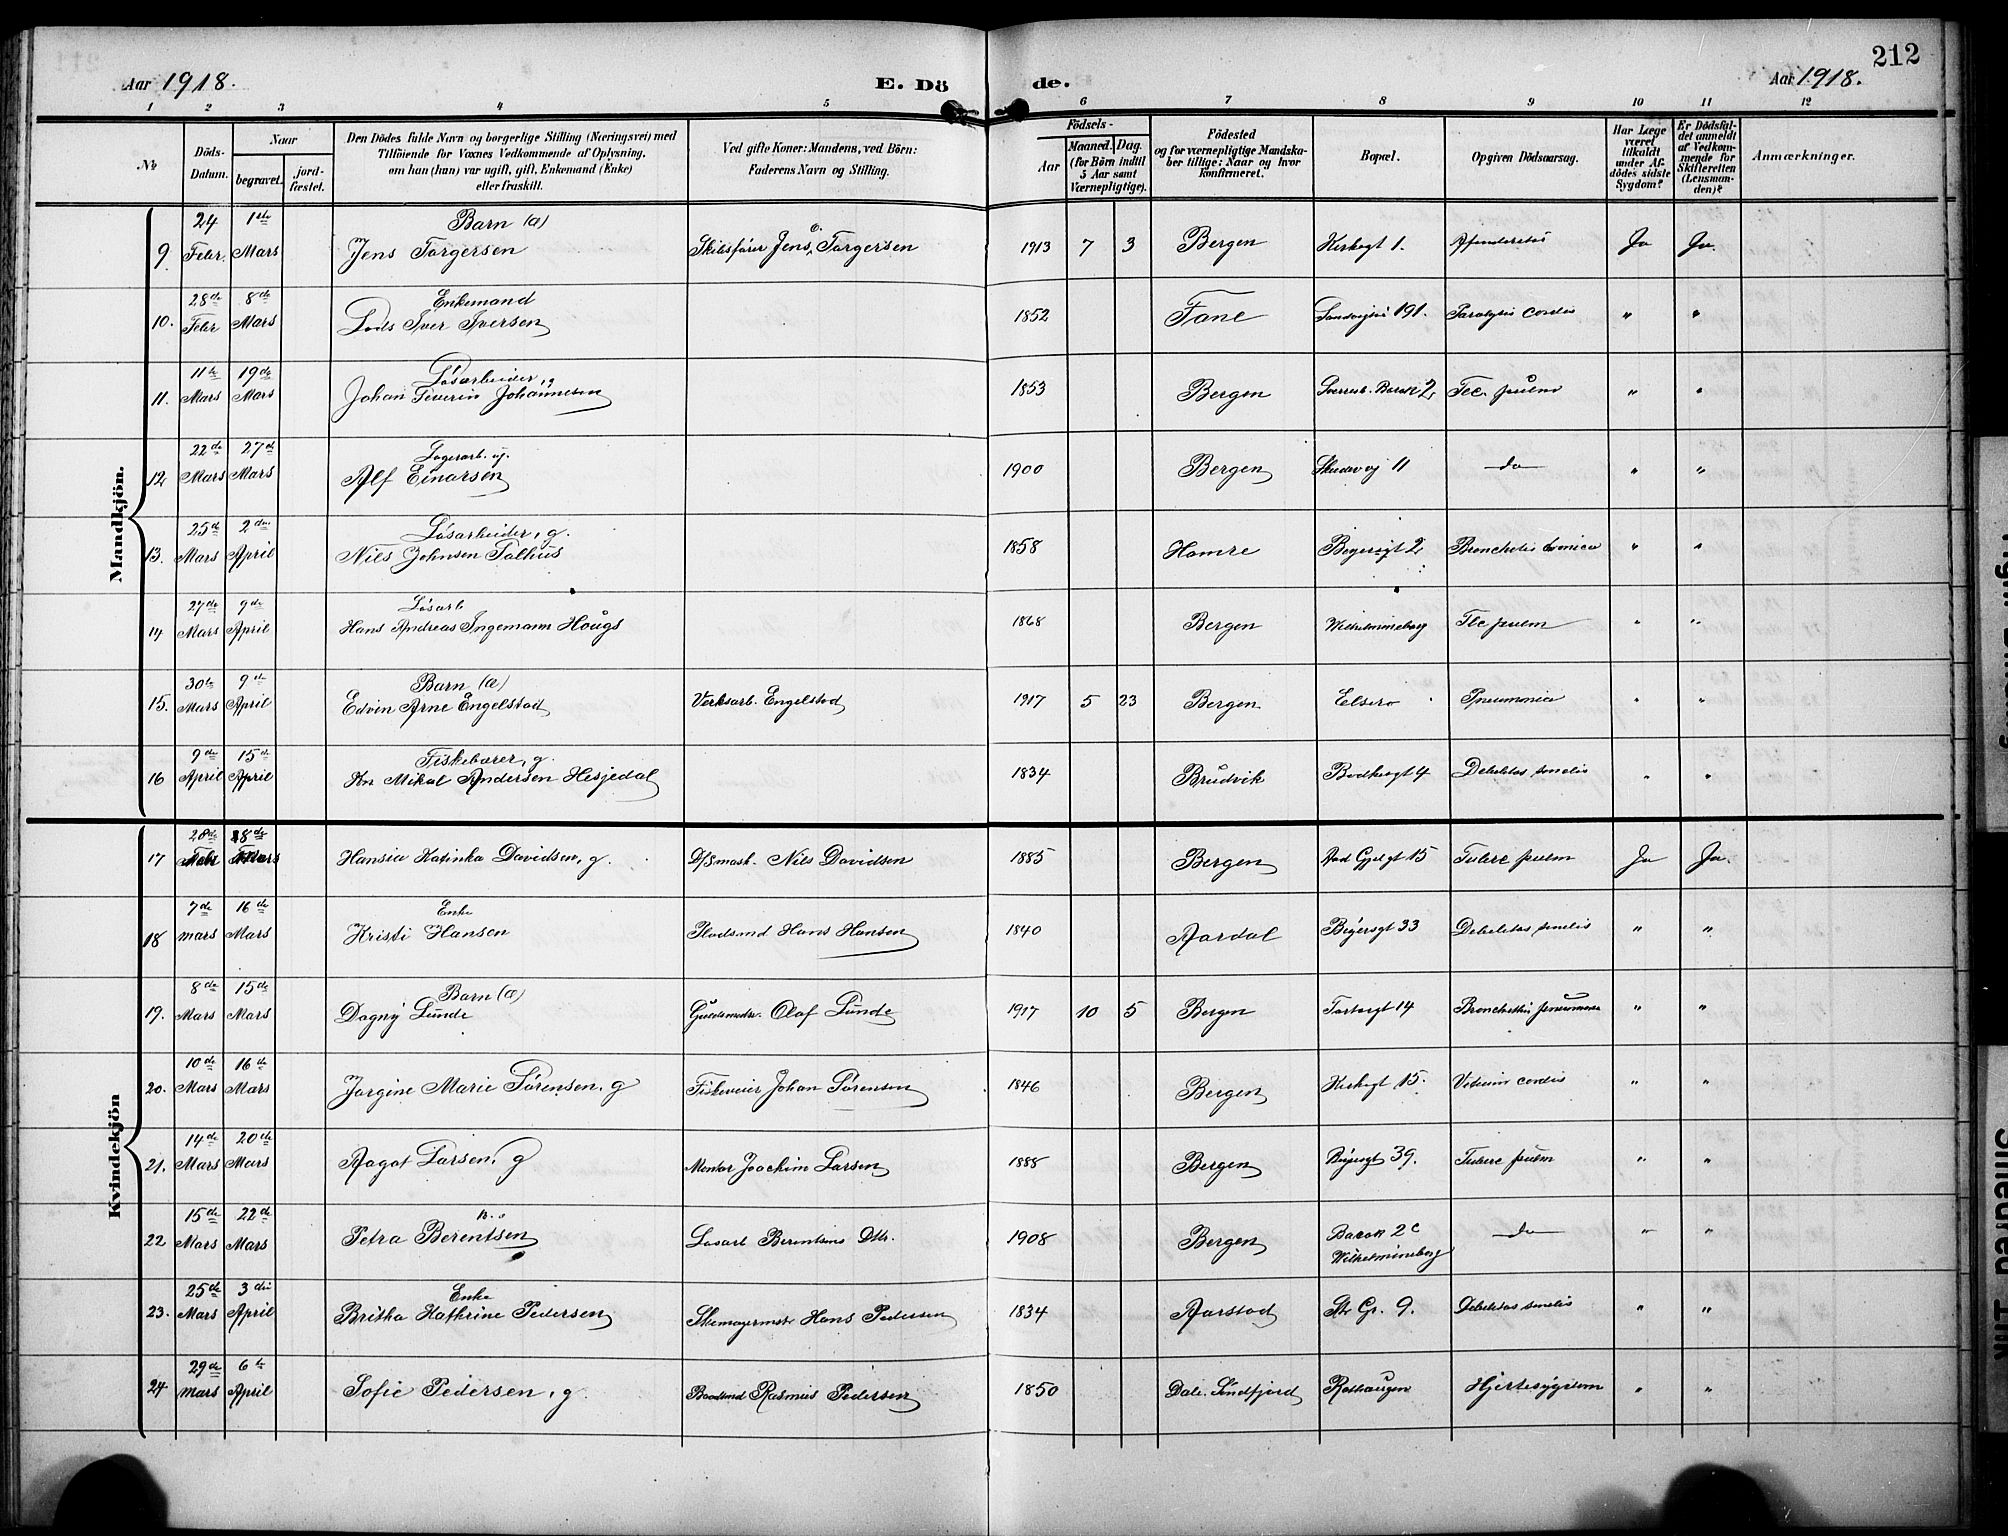 212
Aar 1918. E. Dö de. Aar 1918.
1 2 3 4 5 6 7 8 9 10 11 12
No
Döds-Datum.
Naar
begravet.
jord-fæstet.
Den Dödes fulde Navn og borgerlige Stilling (Næringsvei) med
Tilföiende for Voxnes Vedkommende af Oplysning,
om han (hun) var ugift, gift, Enkemand (Enke)
eller fraskilt.
Ved gifte Koner: Mandens, ved Börn:
Faderens Navn og Stilling.
Födsels-
Aar
Maaned. Dag.
(for Börn indtil
5 Aar samt
Værnepligtige).
Födested
og for værnepligtige Mandska-
ber tillige: Naar og hvor
konfirmeret.
Bopæl.
Opgiven Dödsaarsag.
Har Læge
været
tilkaldt
under Af-
dödes sidste
Sygdom?
Er Dödsfal-
det anmeldt
af Vedkom-
mende for
Skifteretten
(Lensman-
den)?
Anmærkninger.
Mandkjön.
9. 24 Febr. 1ste Mars Barn (æ) Jens Torgersen Skibsfører Jens Torgersen 1913 7 3 Bergen Kirkegt 1. Ja Ja.
10. 28de Febr 8de Mars Enkemand Iver Iversen 1852 Fane Sandvigsv 191. Paralysis cordis " "
11. 11te Mars 19de Mars Løsarbeider, g Johan Severin Johannesen 1853 Bergen Barak 2 Tbc. pulm " "
12 22de Mars 27de Mars Lagerarb. ug. Alf Einarsen 1900 Bergen 11 do " "
13. 25de Mars 2den April Løsarbeider, g. Nils Johnsen Talhus 1858 Hamre Beyersgt 2 Bronchitis cronica " "
14 27de Mars 9de April Løsarb Hans Andreas Ingemann Hougs 1868 Bergen Wilhelmineborg Tbc pulm " "
15. 30te Mars 9de April Barn (æ) Edvin Arne Engelstad Verksarb. Engelstad 1917 5 23 Bergen Elsero Pneumonia " "
16 9de April 15de April Fiskebærer, g. Mikal Andersen Hesjedal 1834 Brudvik 4 Debilitas senilis " "
Kvindekjön
17 28de Febr 8de Mars Hansia Katinka Davidsen, g. Nils Davidsen 1885 Bergen 15 Tuberc pulm Ja Ja.
18 7de mars 16de Mars Enke Kristi Hansen Pladsmd Hans Hansen 1840 Aardal Beyersgt 33 Debilitas senilis " "
19. 8de Mars 15de Mars Barn (æ) Dagny Lunde Guldsmedsv. Olaf Lunde 1917 10 5 Bergen 14 Bronchitis pneumonia " "
20. 10de Mars 16de Mars Jørgine Marie Sørensen, g Fiskeveier Johan Sørensen 1846 Bergen Kirkegt 15. Vitium cordis " "
21. 14de Mars 20de Mars Aagot Larsen, g Montør Joachim Larsen 1885 Bergen Beyersgt 39. Tuberc pulm " "
22 15de Mars 22de Mars Petra Berentsen Løsarb Berentsens Dtr. 1908 Bergen Barak 2c Wilhelmineborg do " "
23. 25de Mars 3die April Enke Britha Kathrine Pedersen Skomagermstr Hans Pedersen 1834 Aarstad 9. Debilitas senilis " "
24 29de mars 6te April Sofie Pedersen, g. Baadsmd Rasmus Pedersen 1850 Dale Søndfjord Rothaugen Hjertesygdom " "